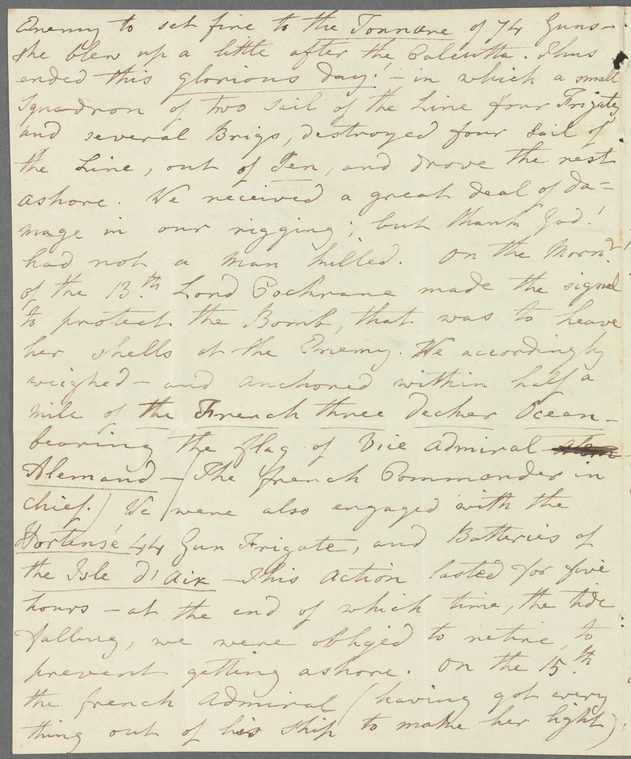 Enemy to set fire to the Tonnere of 74 Guns-
She blew up a little after the Calcutta. Thus
ended this glorious day! - in which a small
Squadron of two sail of the Line four Frigates
and several Brigs, destroyed four Sail of
the Line, out of Ten, and drove the rest
ashore. We received a great deal of da=
mage in our rigging; but thank God!
had not a man killed. On the Morng.
of the 13th Lord Cochrane made the signal
to protect the Bomb, that was to heave
her shells at the Enemy. We accordingly
weighed - and anchored within half a
mile of the French three decker Ocean-
bearing the flag of Vice Admiral
Alemand - (The french Commander in
chief.) We were also engaged with the
Hortense 44 Gun Frigate, and Batteries of
the Isle d'Aix - This Action lasted for five
hours - at the end of which time, the tide
falling, we were obliged to retire, to
prevent getting ashore. On the 15th
the french Admiral (having got every
thing out of his ship to make her light)